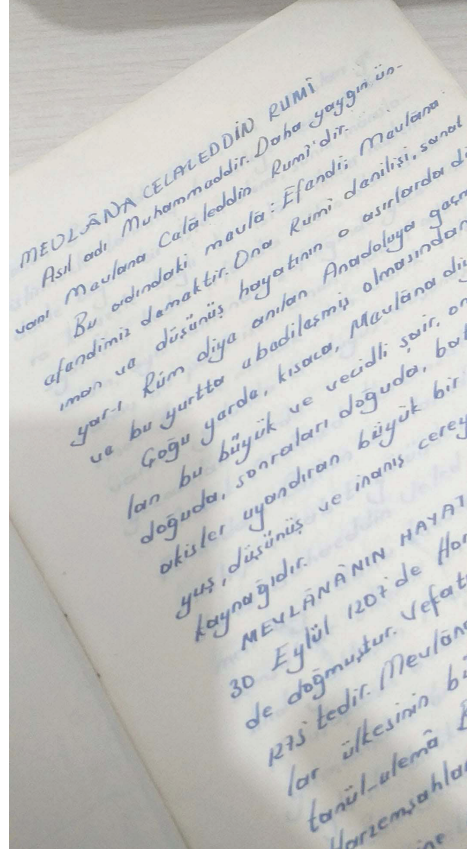 MEVLÂNA CELALEDDİN RUMÎ
Asıl adı Muhammaddir. Daha yaygın ün-
vanı Mavlana Calâleddin Rumî'dir.
Bu adındaki mavla: Efandi; Mavlâna
afendimiz demaktir. Ona Rumî danilişi, sanat
iman va düşünüş hayatının o asırlarda di
yar-ı Rûm diya anılan Anadoluya gaçm
va bu yurtta abadilaşmiş olmasından
Çoğu yarda, kısaca, Mavlâna diy
lan bu büyük ve vecidli şair, on
doğuda, sonraları doğuda, bat
akisler uyandıran büyük bir
yuş, düşünüş ve inanış cerey
kaynağıdır.
MEVLÂNÂ'NIN HAYAT
30 Eylül 1207'de Hor
de doğmuştur. Vefat
1273'tedir. Mevlâna
lar ülkesinin bü
tanül-ulemâ B
Harzemşahla
ine